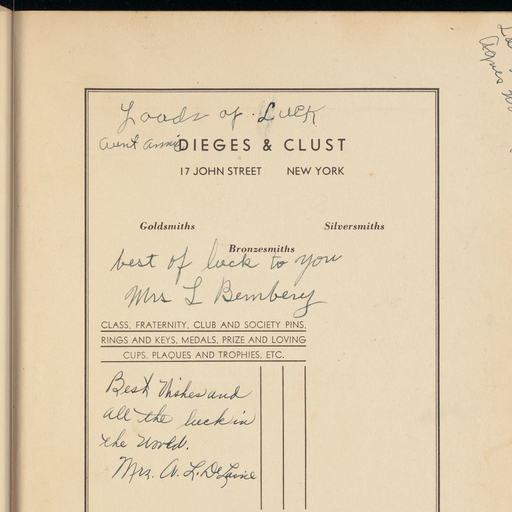 Loads of Luck
Aunt Annie
DIEGES & CLUST
17 JOHN STREET NEW YORK
Goldsmiths Silversmiths
Bronzesmiths
best of luck to you
Mrs L Bembery
CLASS, FRATERNITY, CLUB AND SOCIETY PINS,
RINGS AND KEYS, MEDALS, PRIZE AND LOVING
CUPS, PLAQUES AND TROPHIES, ETC.
Best Wishes and
all the luck in
the World.
Mrs. A. L. DeLaine
Agnes